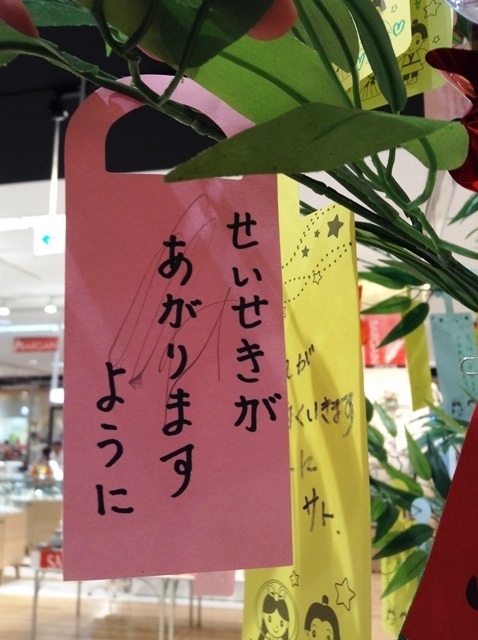 せいせきが
あがります
ように
が
くいきます
に
サト.